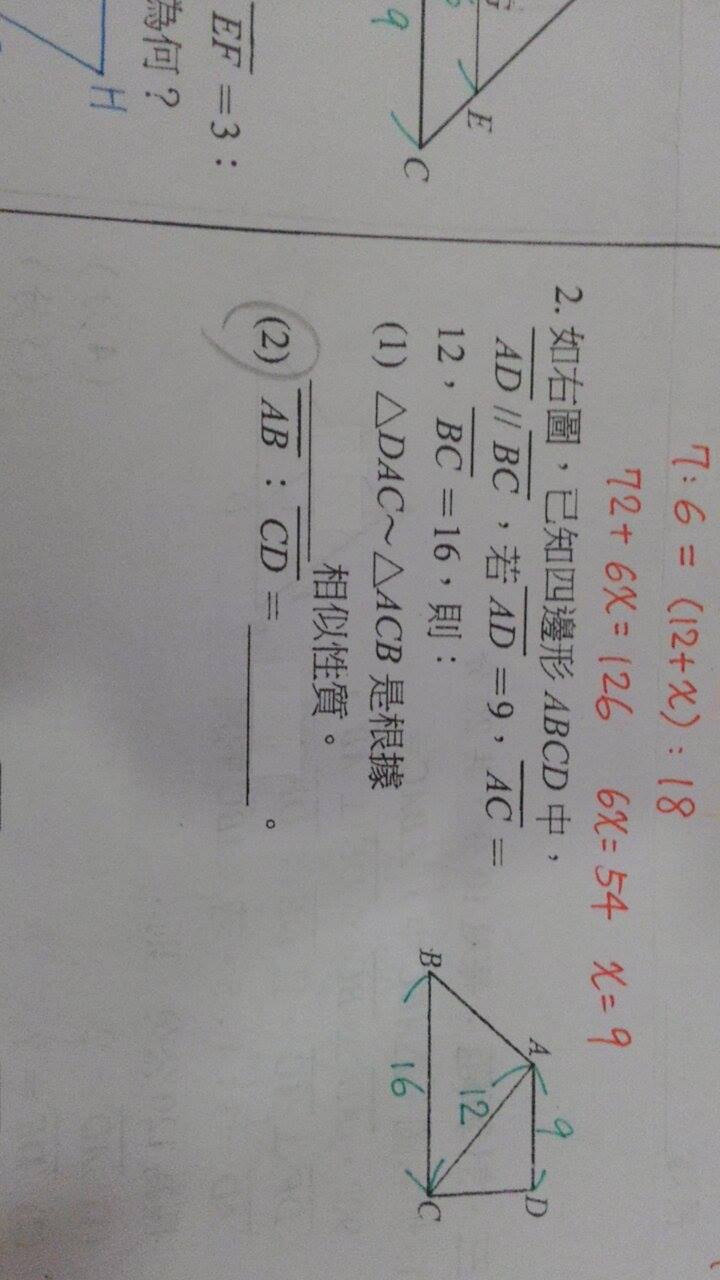 9
G
E
C
EF=3：
為何？
H
7:6=(12+x):18
72+6x=126 6x=54 x=9
2. 如右圖，已知四邊形ABCD中，
AD//BC，若AD=9，AC=
12，BC=16，則：
(1) △DAC~△ACB是根據
相似性質。
(2) AB：CD= 。
A
D
B
C
9
12
16